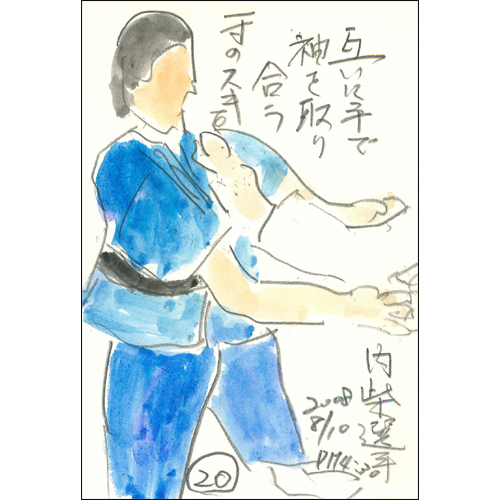 互いに手で
袖を取り
合う
一才のスキを
内柴選手
2008
8/10
PM4:30
20